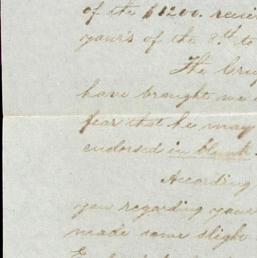 of the $1200. recei
yours of the 8th to
The
have brought me
fear that he may
endorsed in blank
According
you regarding your
made some slight